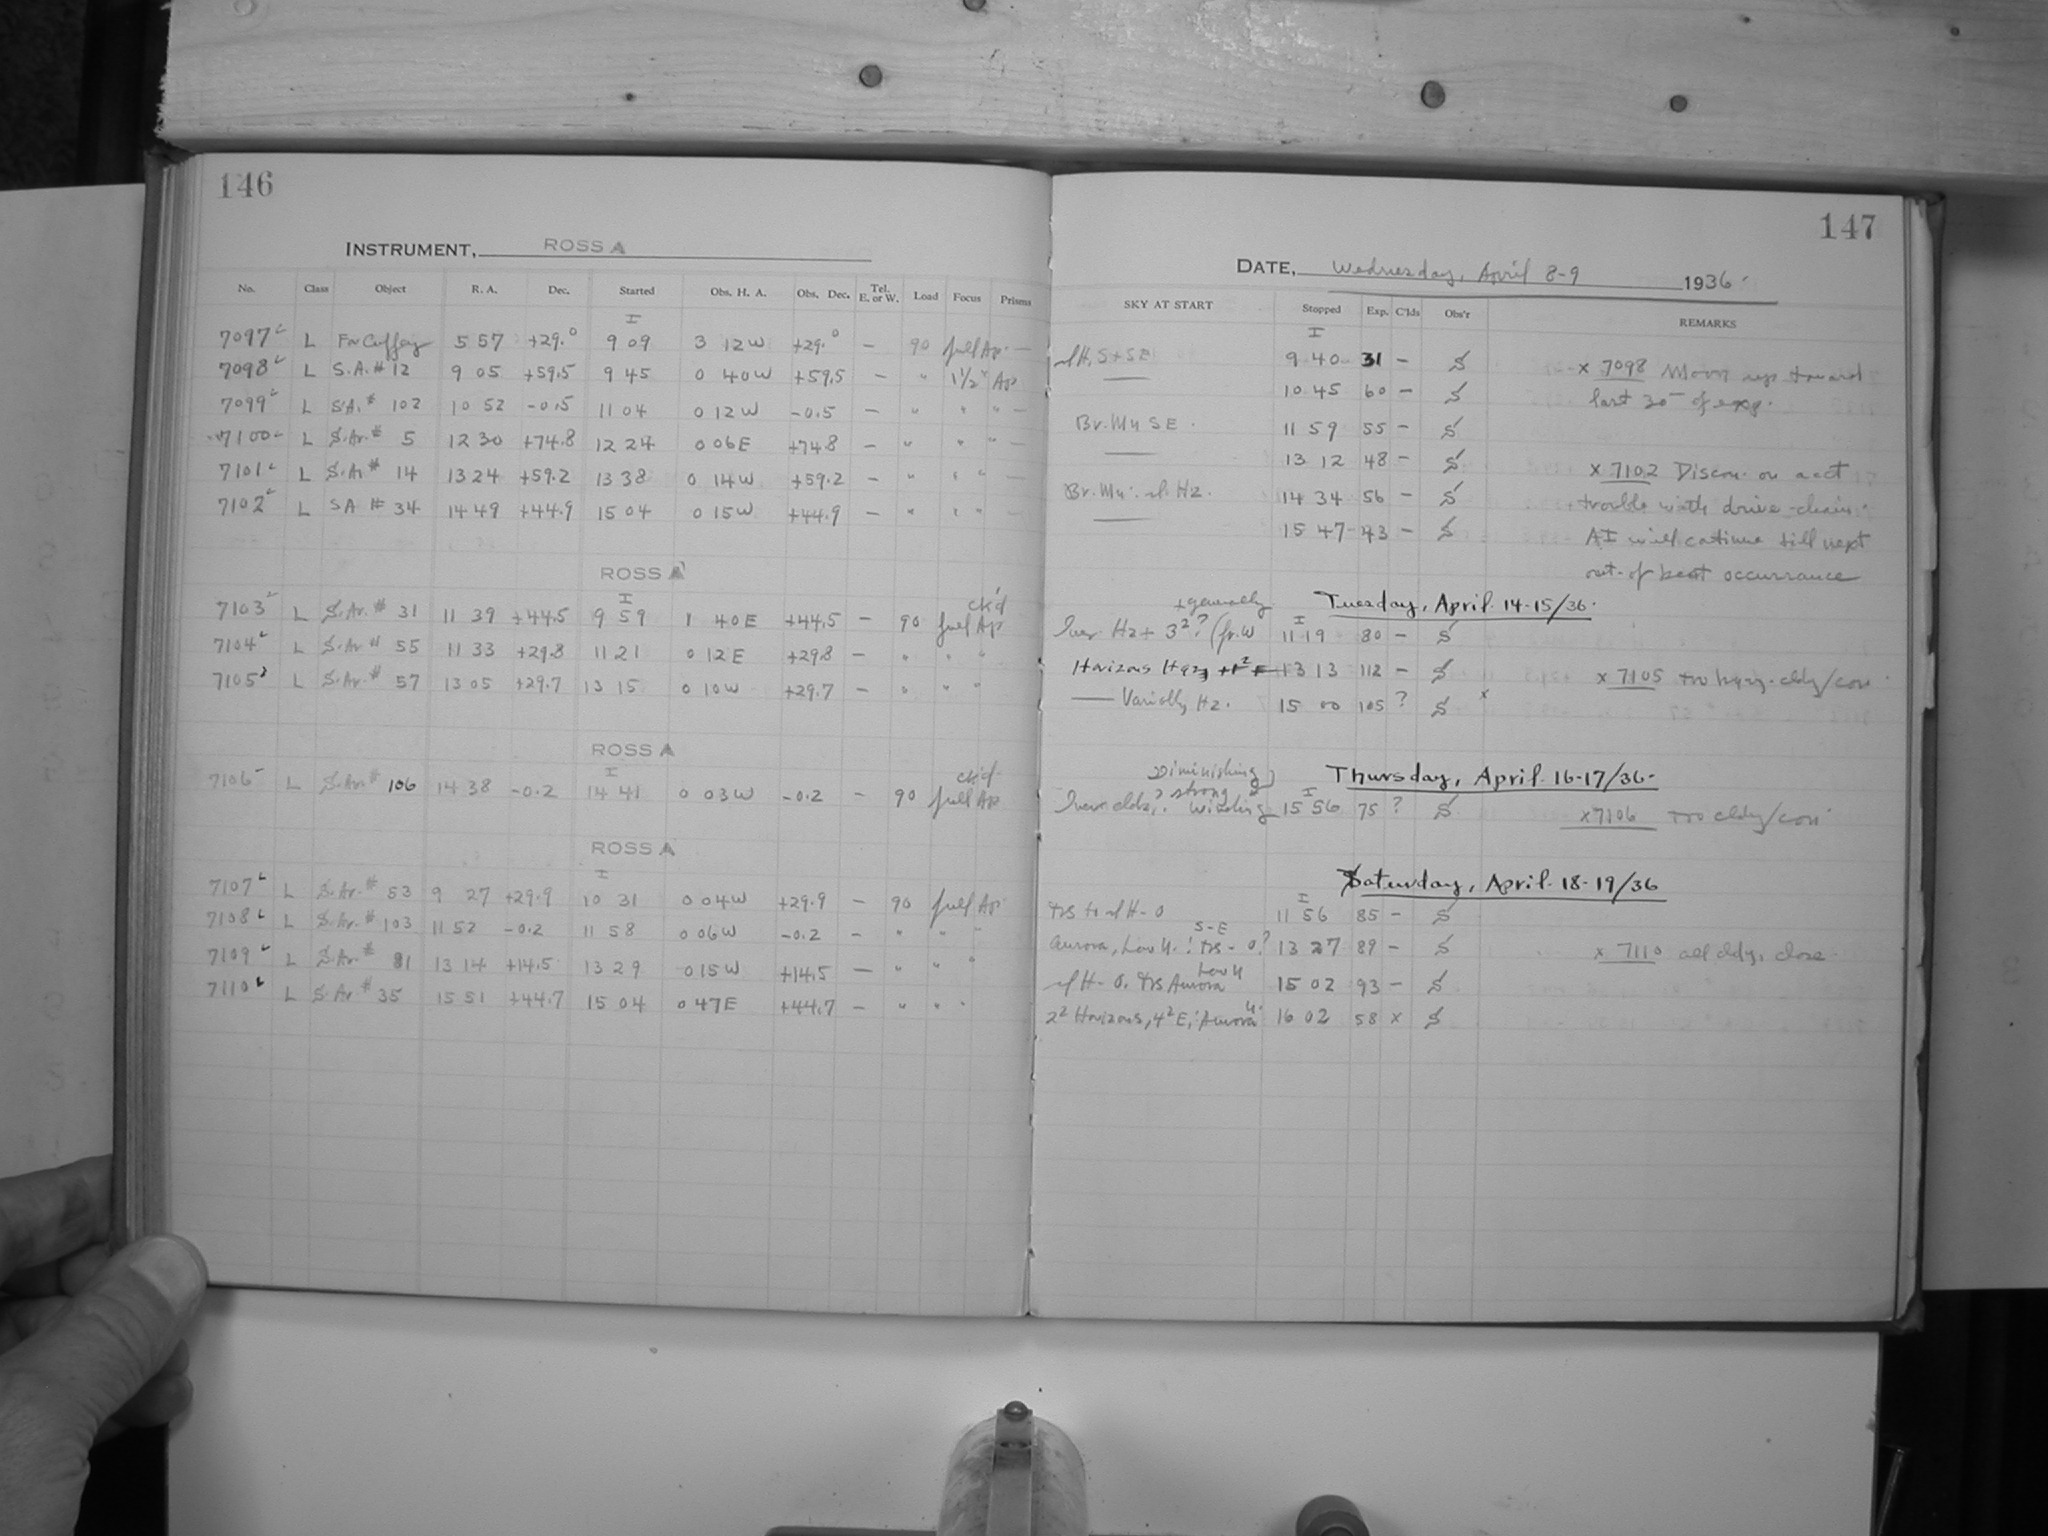 146
INSTRUMENT, ROSS A
No. Class Object R. A. Dec. Started Obs. H. A. Obs. Dec. Tel. E. or W. Load Focus Prisms
I
7097 L For Cuffey 5 57 +29.0 9 09 3 12 W +29.0 — 90 full Ap. —
7098 L S.A. # 12 9 05 +59.5 9 45 0 40 W +59.5 — " 1½" Ap
7099 L S.A. # 102 10 52 -0.5 11 04 0 12 W -0.5 — " " " —
7100 L S.Ar. # 5 12 30 +74.8 12 24 0 06 E +74.8 — " " " —
7101 L S.Ar # 14 13 24 +59.2 13 38 0 14 W +59.2 — " " " —
7102 L SA # 34 14 49 +44.9 15 04 0 15 W +44.9 — " " " —
ROSS A
I ck'd
7103 L S.Ar. # 31 11 39 +44.5 9 59 1 40 E +44.5 — 90 full Ap
7104 L S.Ar # 55 11 33 +29.8 11 21 0 12 E +29.8 — " " "
7105 L S.Ar. # 57 13 05 +29.7 13 15 0 10 W +29.7 — " " "
ROSS A
I ck'd
7106 L S.Ar. # 106 14 38 -0.2 14 41 0 03 W -0.2 — 90 full Ap
ROSS A
I
7107 L S.Ar. # 53 9 27 +29.9 10 31 0 04 W +29.9 — 90 full Ap
7108 L S.Ar. # 103 11 52 -0.2 11 58 0 06 W -0.2 — " " "
7109 L S.Ar. # 81 13 14 +14.5 13 29 0 15 W +14.5 — " " "
7110 L S.Ar. # 35 15 51 +44.7 15 04 0 47 E +44.7 — " " "
147
DATE, Wednesday, April 8-9 1936
SKY AT START Stopped Exp. C'lds Obs'r REMARKS
I
S+SE 9 40 31 — S x 7098 Moon up toward
— 10 45 60 — S last 30 of exp.
Br. Mn SE. 11 59 55 — S
— 13 12 48 — S x 7102 Discon. on acct
Br. Mn. Hz. 14 34 56 — S trouble with drive-chain.
— 15 47 43 — S AI will continue till next
out-of beat occurrance
+ generally Tuesday, April 14-15/36.
I
Hz + 3²? (fr. W 11 19 80 — S
Horizons Hazy +1² E 13 13 112 — S x 7105 too hazy-cldy/con
— Variably Hz. 15 00 105 ? S x
Diminishing Thursday, April 16-17/36-
strong I
clds, ? winding 15 56 75 ? S x 7106 too cldy/con
Saturday, April 18-19/36
I
to H-0 11 56 85 — S
S-E
Aurora, Low N. ! - 0? 13 27 89 — S x 7110 all cldy, close
Low N
H-0. Aurora 15 02 93 — S
2² Horizons, 4² E, Aurora N. 16 02 58 x S